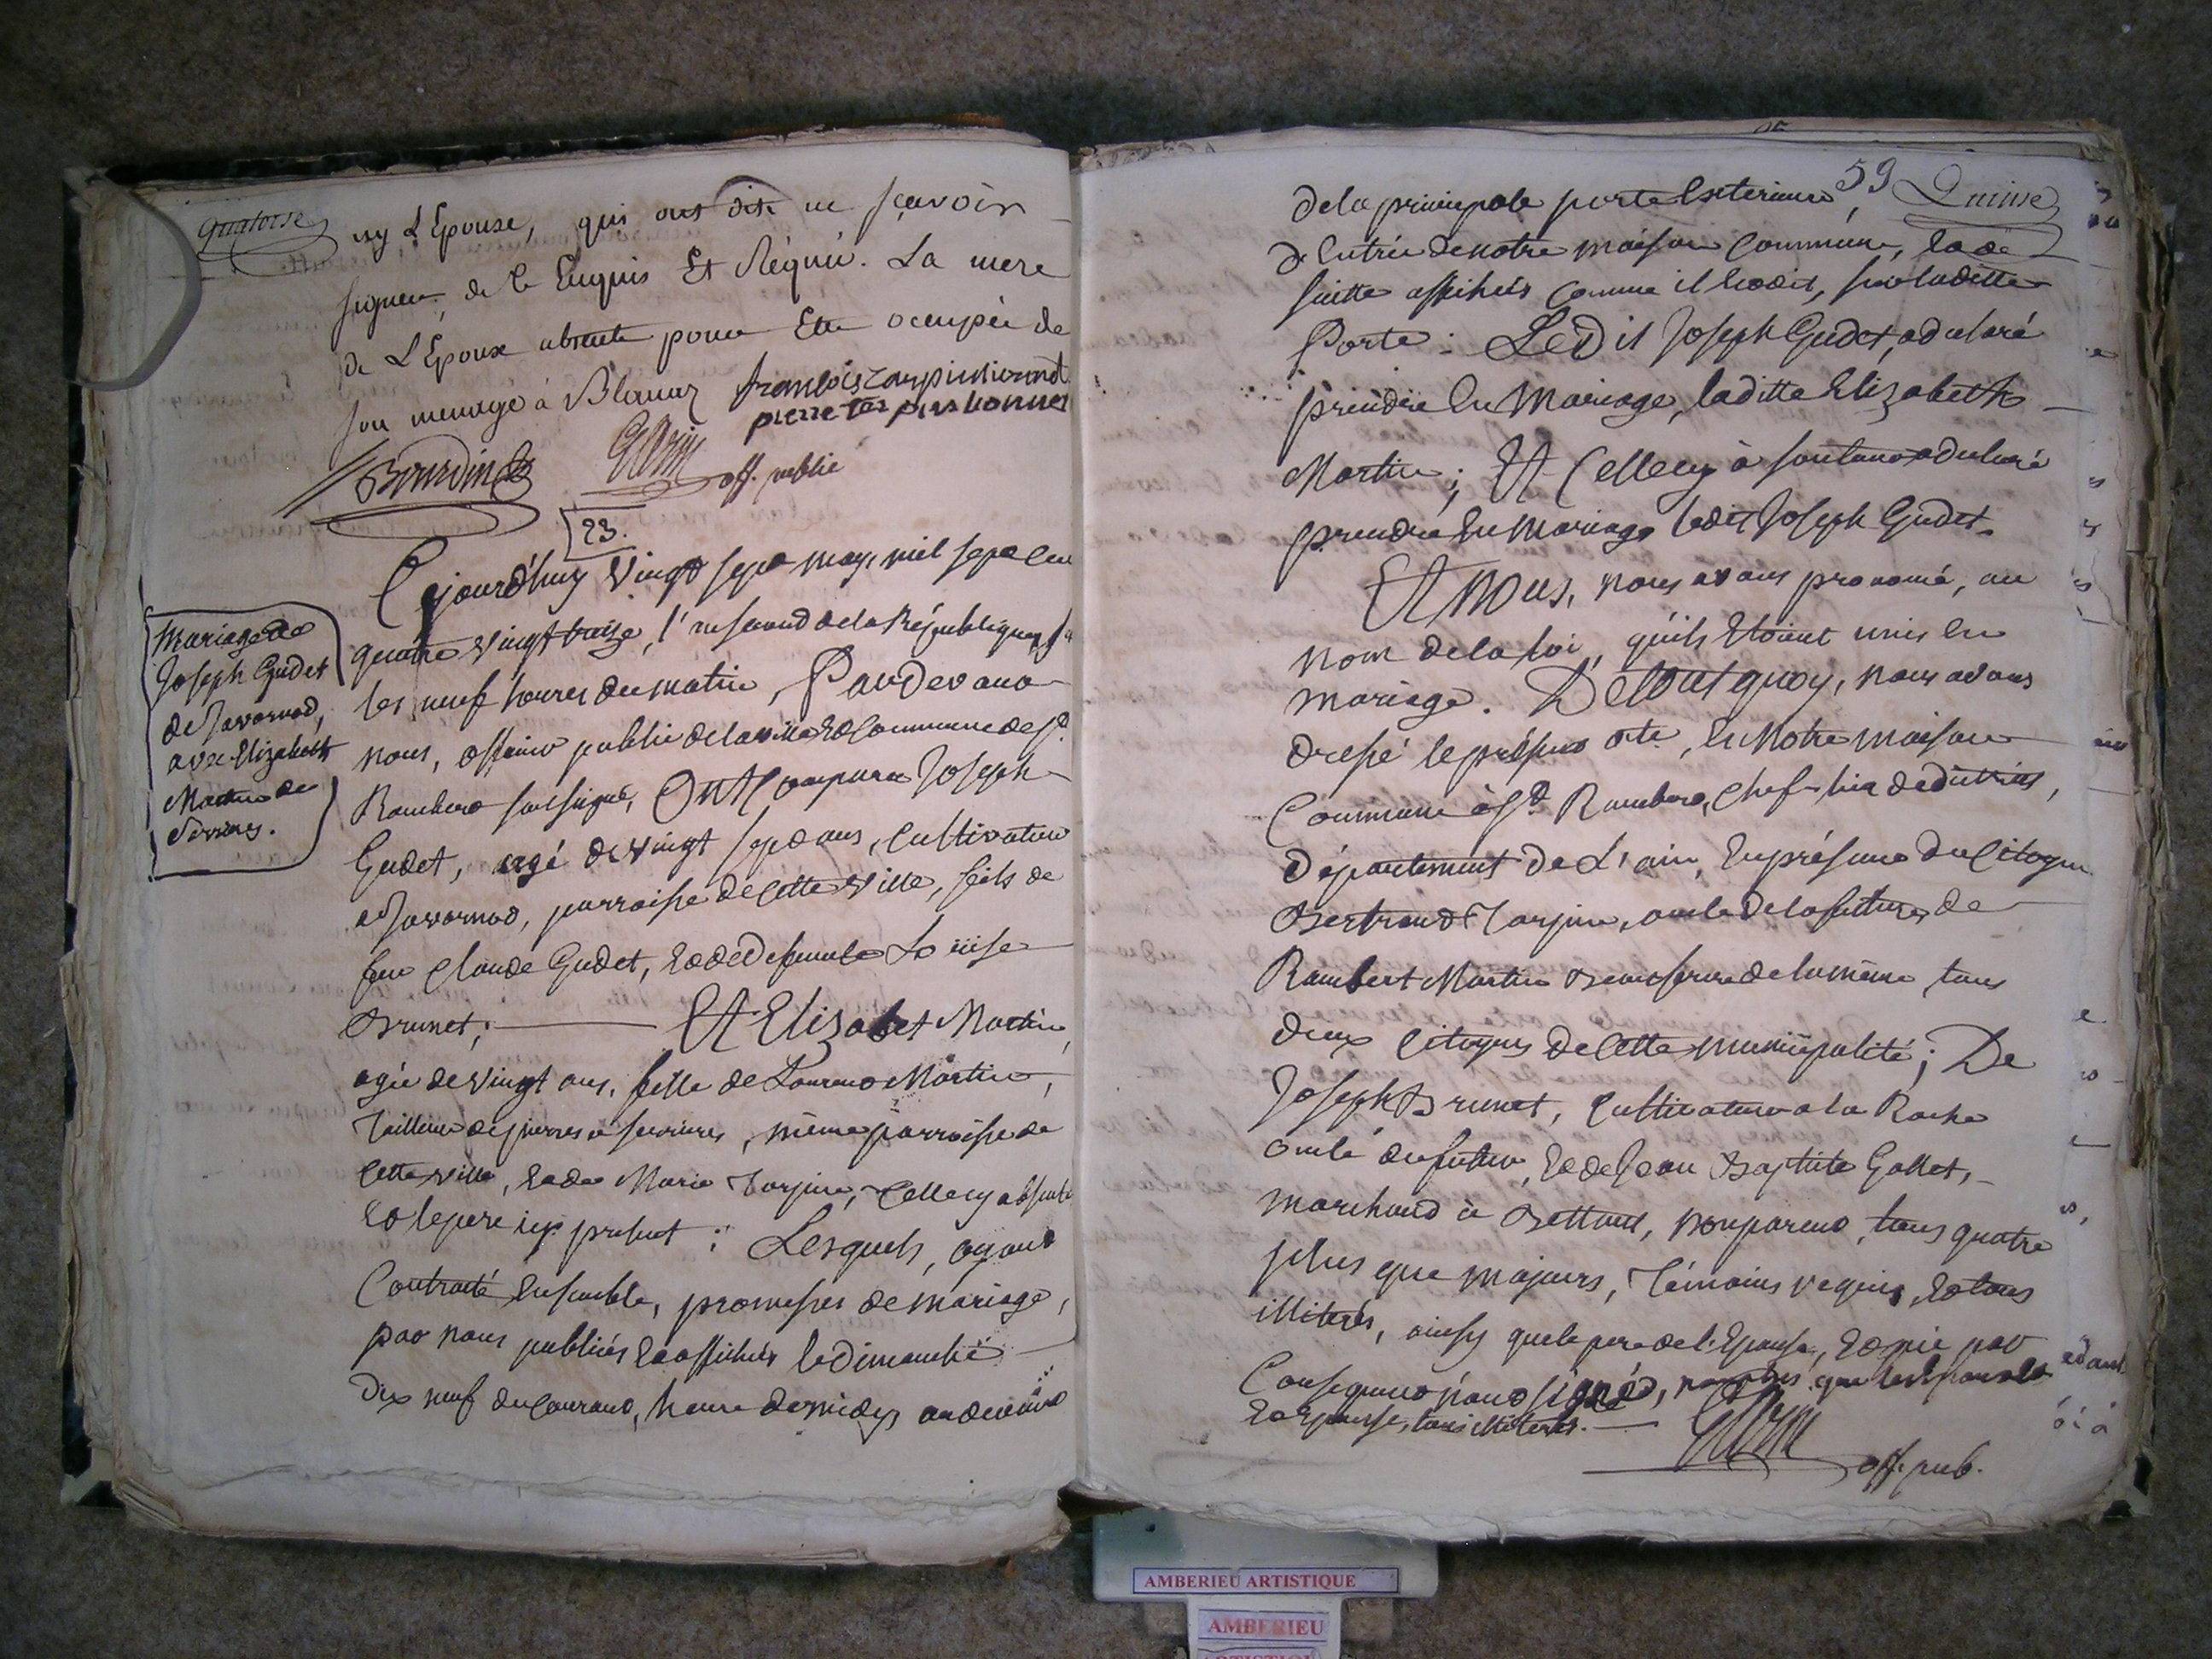 quatorse
ny L'Epouse, qui ont dit ne sçavoir
signer, de ce Enquis Et Réquis. La mere
de L'Epoux absente pour Etre occupée de
son menage à Blanaz
pierre
off. public
23.
Cejourd'huy vingt sept may, mil sept cent
quatre vingt treize, l'an second de la République,
les neuf heures du matin, Pardevant
nous, officier public de la ville Et Commune de St.
Rambert soussigné, Ont Comparu Joseph
Gudet, agé de vingt sept ans, Cultivateur
à Javornod, parroisse de cette ville, fils de
feu Claude Gudet, Et de Defunte Loüise
Brunet; Et Elizabet Martin,
agée de vingt ans, fille de Laurent Martin,
Tailleur de pierres à serrieres, même parroisse de
cette ville, Et de Marie Tarpin, Celle cy absente
Et le pere icy present : Lesquels, ayant
Contracté Ensemble, promesses de mariage,
par nous publiées Et affichées le Dimanche
Dix neuf du Courant, heure de midy, au devant
Mariage de
Joseph Gudet
de Javornod,
avec Elizabeth
Martin de
Serrieres.
59 Quinse
de la principale porte Exterieure,
d'Entrée de notre maison Commune, Et de
suitte affichées Comme il Est dit, sur laditte
Porte : Ledit Joseph Gudet, a declaré
prendre En Mariage, laditte Elizabeth
Martin; Et Celle cy à son tour a declaré
prendre En Mariage ledit Joseph Gudet.
Et nous, nous avons prononcé, au
nom de la loi, qu'ils Etoient unis En
mariage. De tout quoy, nous avons
dressé le présent acte, En Notre maison
Commune à St. Rambert, Chef-lieu de district,
Département de L'ain, En présence du Citoyen
Bertrand Tarpin, oncle de la future, de
Rambert Martin Beaufrere de la même, tous
deux Citoyens de Cette municipalité; De
Joseph Brunet, Cultivateur à la Roche
oncle du futur, Et de Jean Baptiste Gallet,
marchand à Bettant, non parent, tous quatre
plus que majeurs, Témoins requis, Et tous
illiterés, ainsy que le pere de l'Epouse, Et qui par
Consequence n'ont signés, non plus que les Epoux
Et Epouse, tous illiterés.
off. pub.
AMBERIEU ARTISTIQUE
AMBERIEU